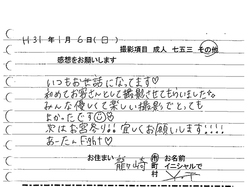 H31年1月6日(日)
撮影項目 成人 七五三 その他
感想をお願いします
いつもお世話になってます♡
初めてお客さんとして撮影させてもらいましたが
みんな優しくて楽しい撮影でとっても
よかったです☺
次はお宮参り!! 宜しくお願いします!!!!
あーたん Fight♡
お住まい 龍ヶ崎 市町村 お名前 イニシャルで